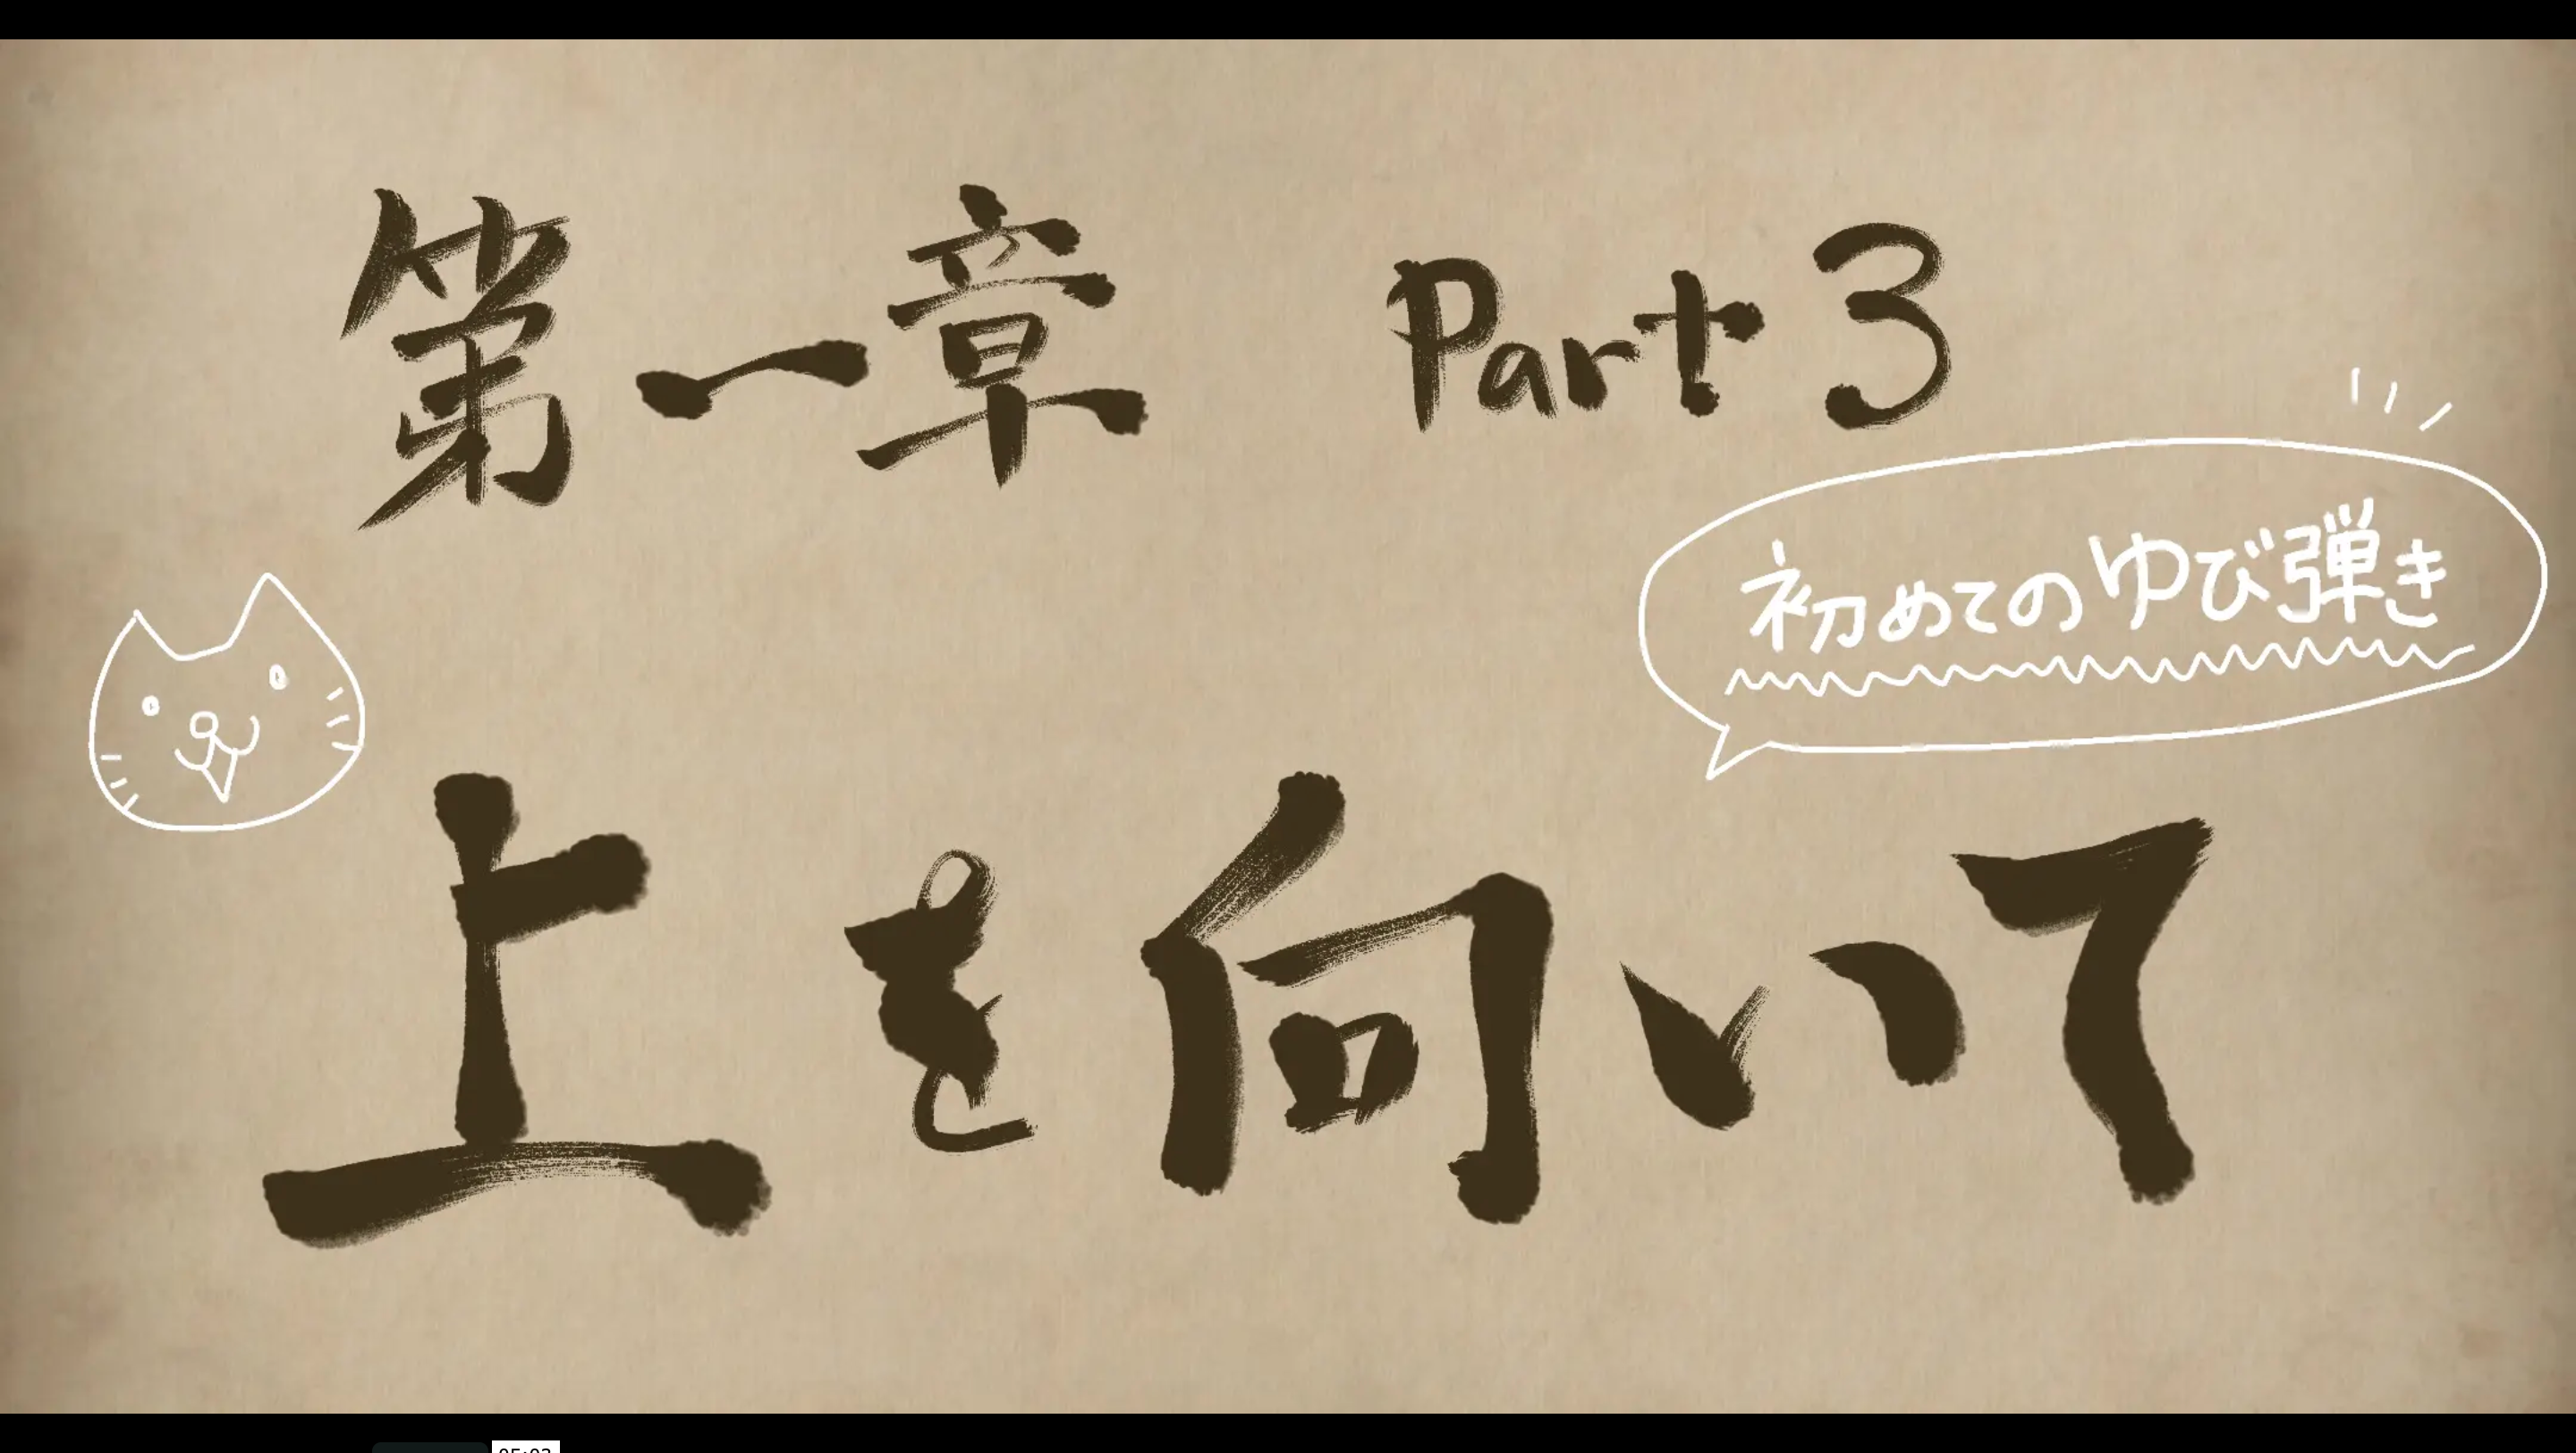 第一章 Part 3
初めてのゆび弾き
上を向いて